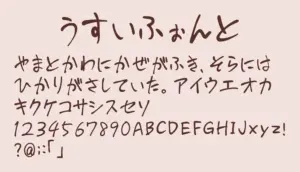 うすいふぉんと
やまとかわにかぜがふき、そらには
ひかりがさしていた。アイウエオカ
キクケコサシスセソ
1234567890ABCDEFGHIJxyz!
?@;:「」